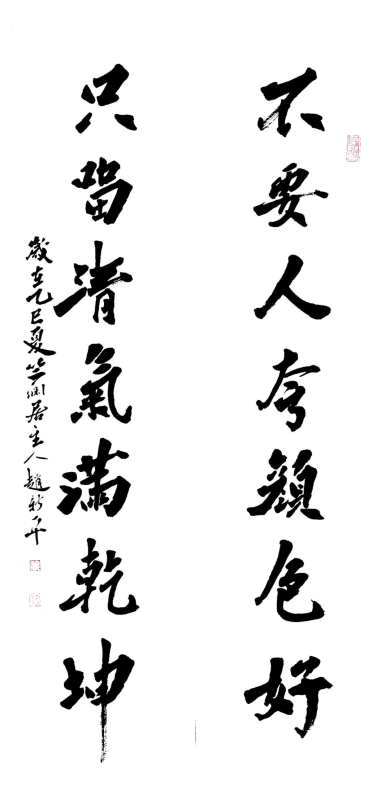 不要人夸顔色好
只留清氣滿乾坤
歲在乙巳夏竺涧居主人趙新平